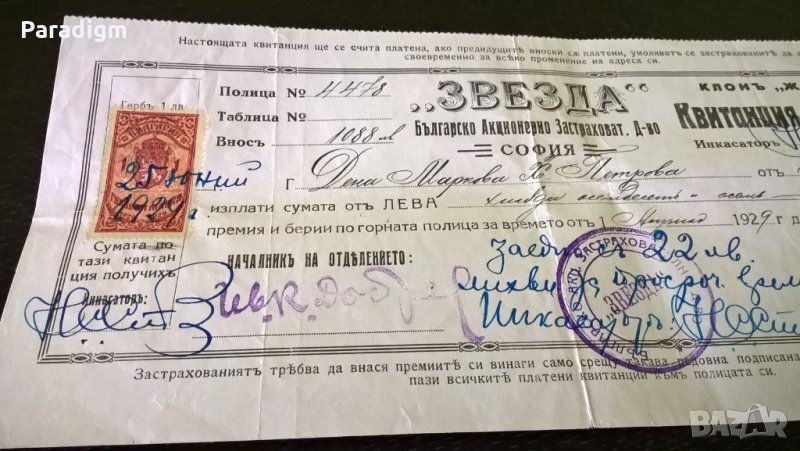 Paradigm
Настоящата квитанция ще се счита платена, ако предидущитѣ вноски сѫ платени, умоляватъ се застрахованитѣ да
своевременно за всѣко променение на адреса си.
Гербъ 1 лв.
Полица № 4478
Таблица №
Вносъ 1088 лв
„ЗВЕЗДА“
Българско Акционерно Застраховат. Д-во
СОФИЯ
КЛОНЪ „Ж
Квитанция
Инкасаторъ
25 юний
1929 г.
Г Дена Маркова Х Петрова отъ
изплати сумата отъ ЛЕВА хиляда осемдесетъ и осемь
премия и берии по горната полица за времето отъ 1 Априлъ 1929 г д
Сумата по
тази квитан
ция получихъ
Инкасаторъ:
НАЧАЛНИКЪ НА ОТДѢЛЕНИЕТО:
Заедно съ 22 лв.
лихви
Инкасаторъ:
ЗВЕЗДА
Застрахованиятъ трѣбва да внася премиитѣ си винаги само срещу такава редовна подписана
пази всичкитѣ платени квитанции къмъ полицата си.
BAZAR